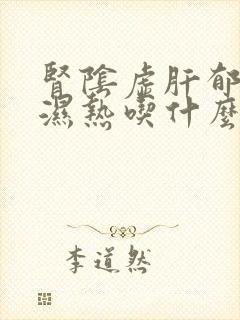 腎陰虛肝郁
濕熱喫什麼
李道然